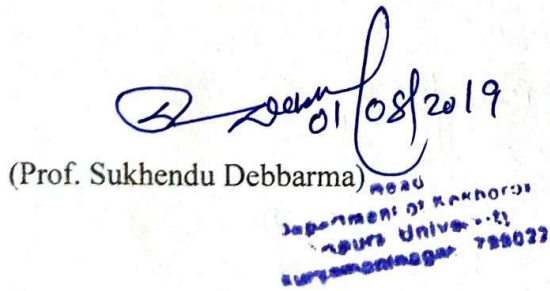 01/08/2019
(Prof. Sukhendu Debbarma)
Head
Department of Kokborok
Tripura University
Suryamaninagar 799022